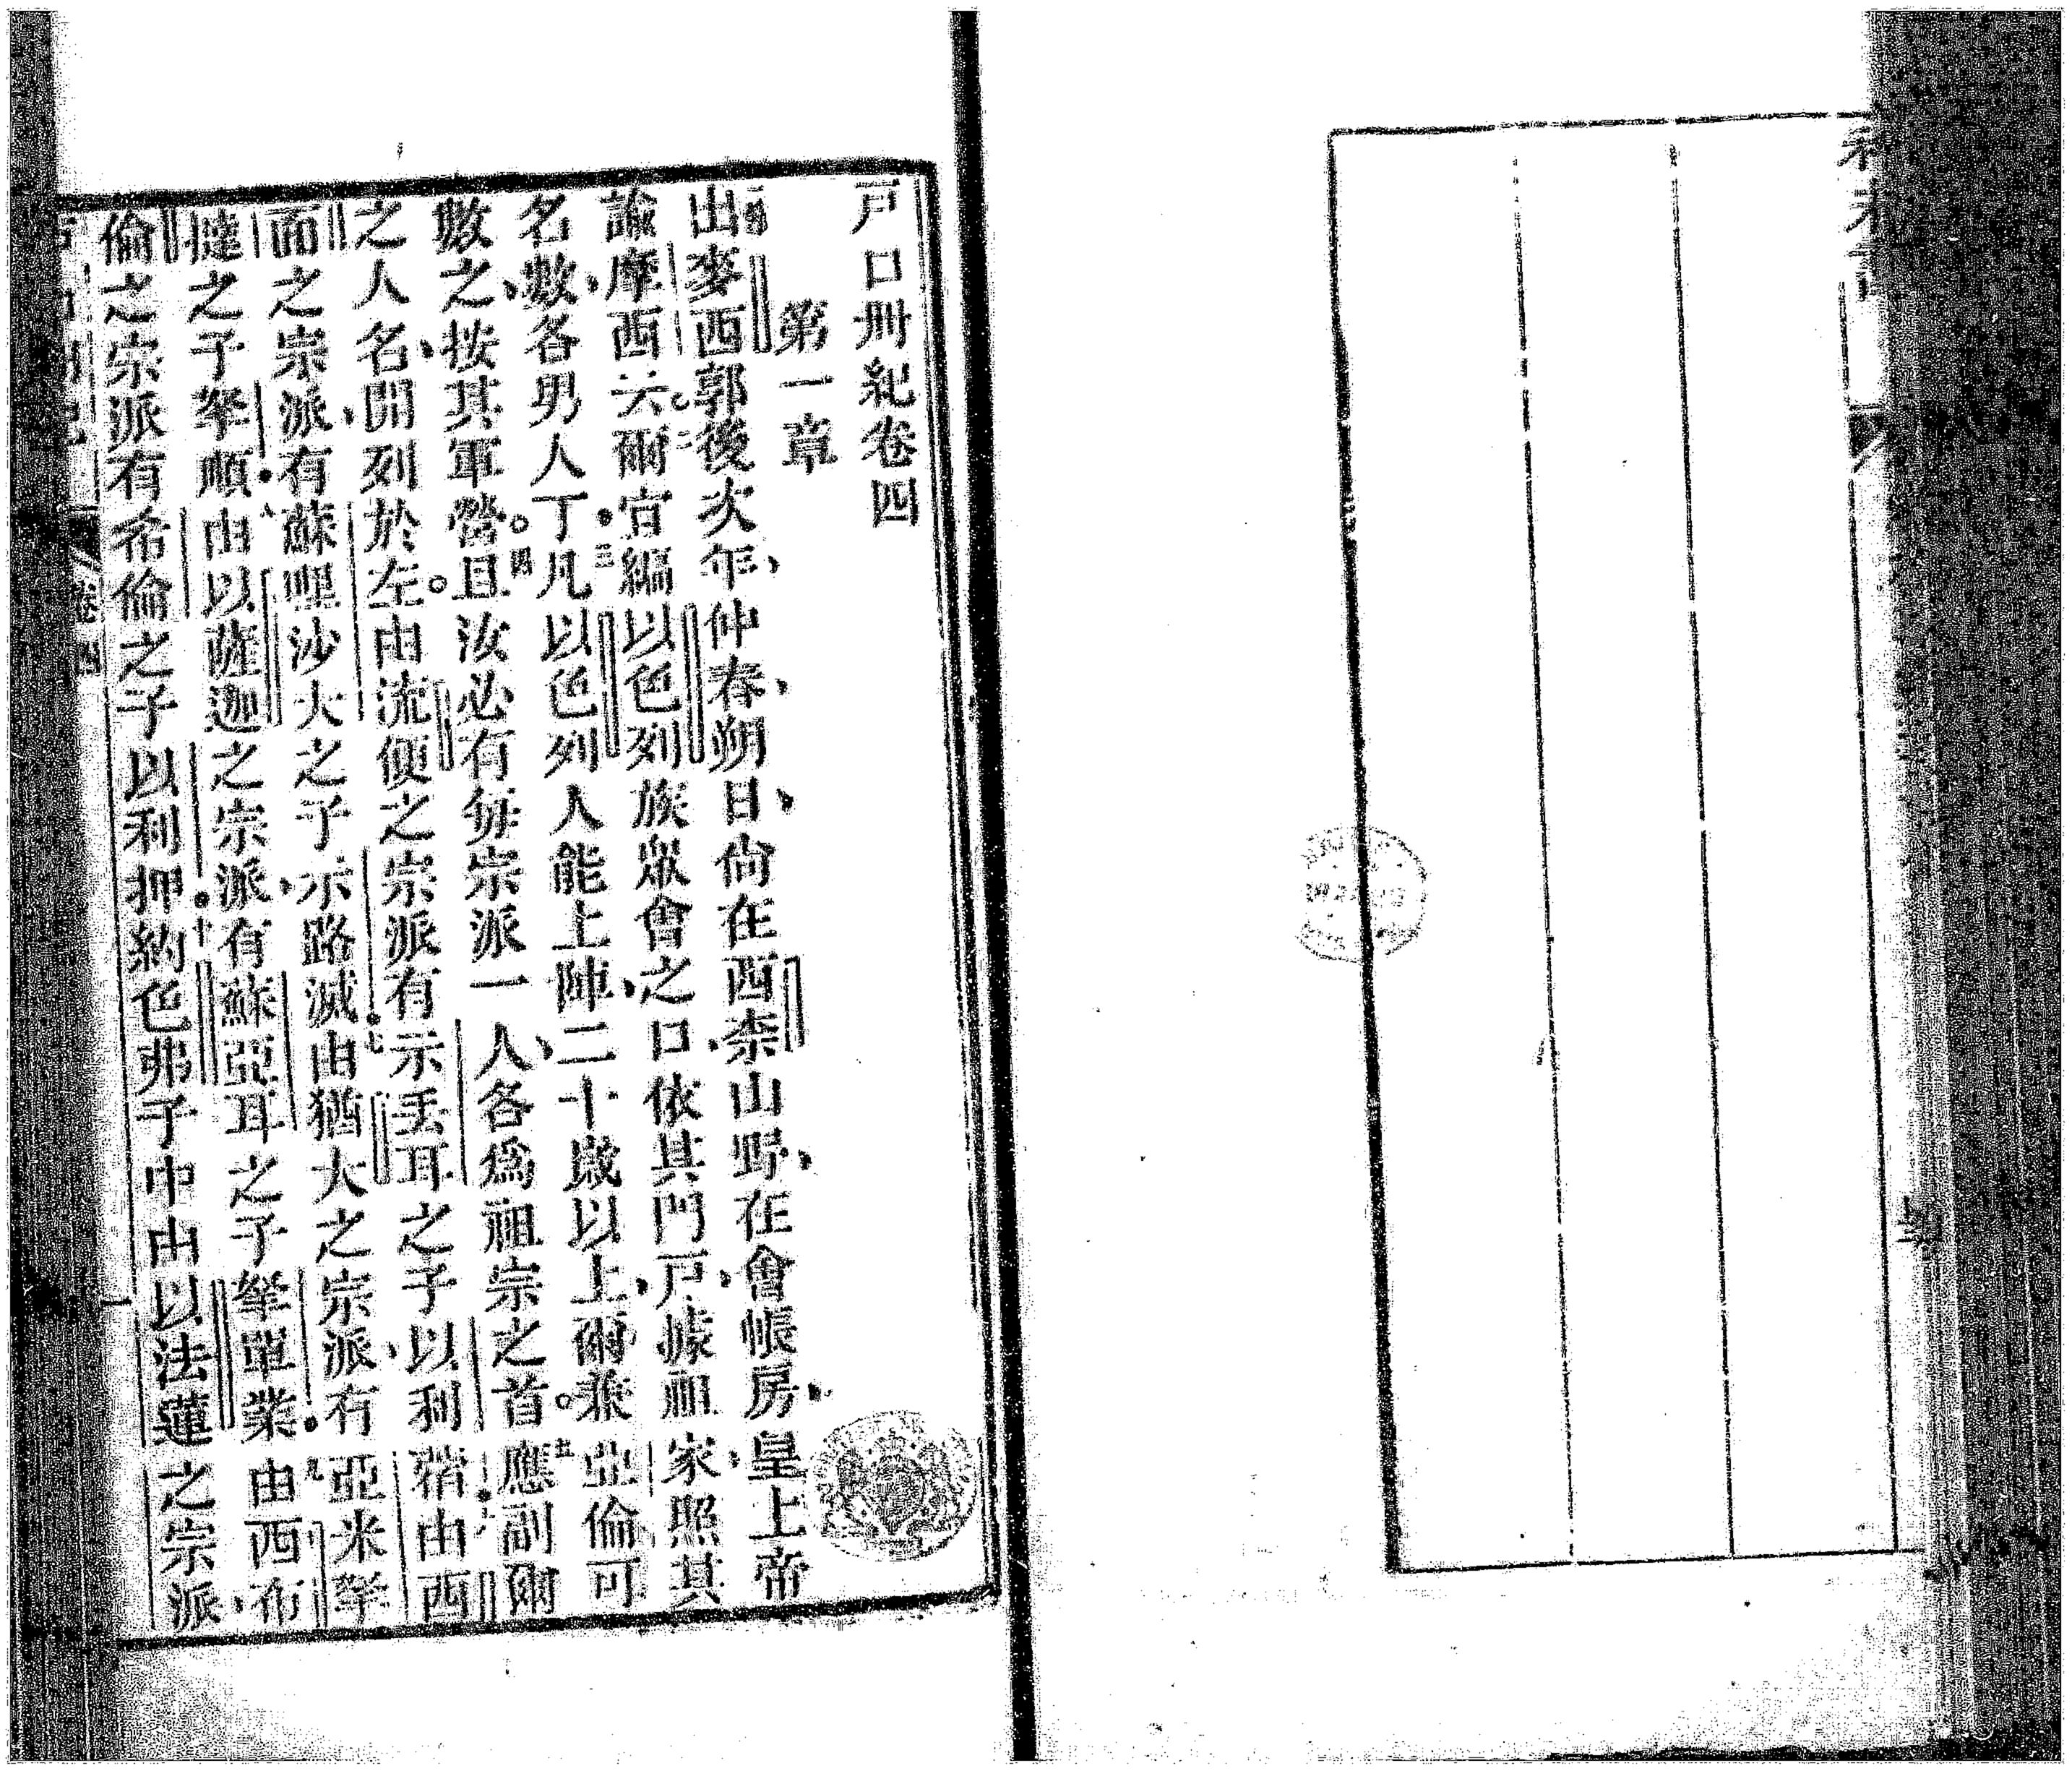 戸口册紀卷四
第一章
一節出麥西郭後次年、仲春、朔日、尙在西柰山野、在會帳房、皇上帝
諭摩西云、二爾官編以色列族衆會之口、依其門戸、據祖家、照其
名數、數各男人丁、三凡以色列人能上陣、二十歲以上、爾兼亞倫可
數之、按其軍營。四且汝必有每宗派一人、各爲祖宗之首。五應副爾
之人名、開列於左。由流便之宗派有示丢耳之子以利蓿、六由西
面之宗派、有蘇哩沙大之子示路滅、七由猶大之宗派、有亞米拏
撻之子拏順、八由以薩迦之宗派、有蘇亞耳之子拏單業、九由西布
倫之宗派有希倫之子以利押、十約色弗子中由以法蓮之宗派、
卷四
一